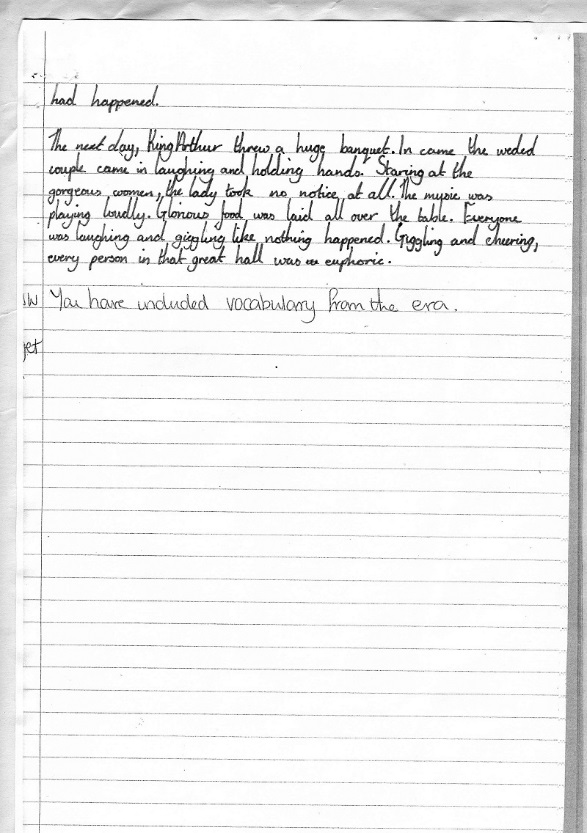 had happened.
The next day, King Arthur threw a huge banquet. In came the weded
couple came in laughing and holding hands. Staring at the
gorgeous women, the lady took no notice at all. The music was
playing loudly. Glorious food was laid all over the table. Everyone
was laughing and giggling like nothing happened. Giggling and cheering,
every person in that great hall was euphoric.
WW You have included vocabulary from the era.
get